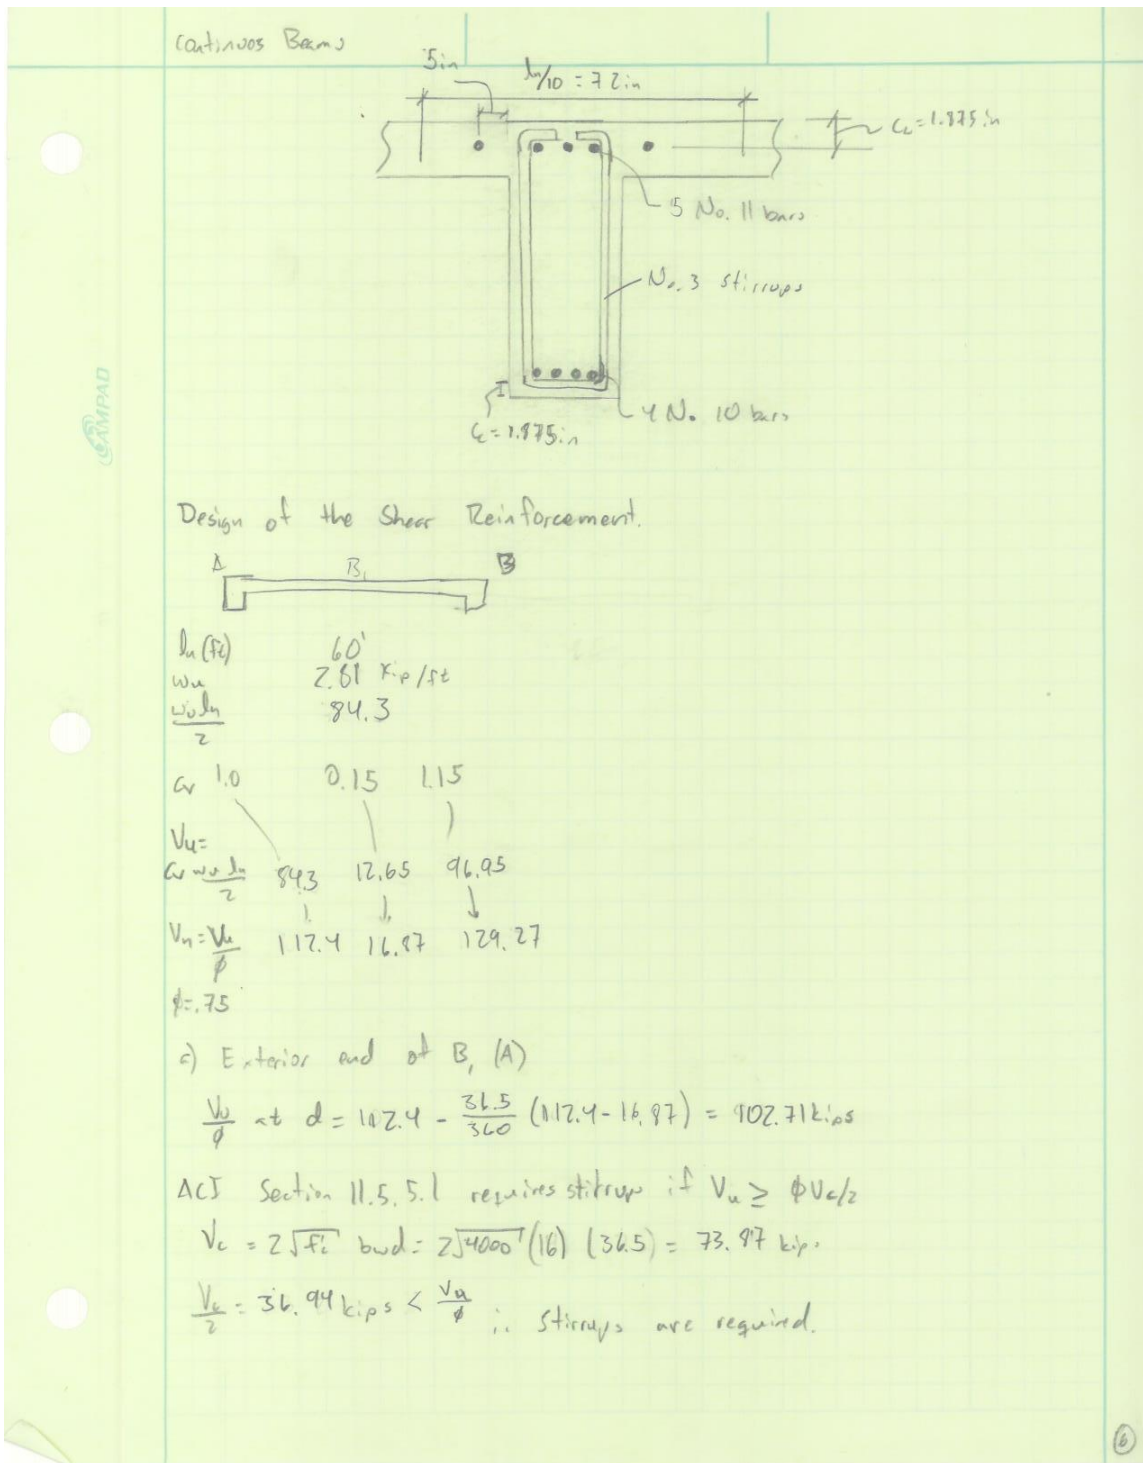 Continuos Beams
5in
ln/10 = 72in
Cc=1.875in
5 No. 11 bars
No. 3 stirrups
4 No. 10 bars
Cc=1.875in
CAMPAD
Design of the Shear Reinforcement.
A B1 B
ln (ft) 60'
wu 2.81 Kip/ft
wuln/2 84.3
Cv 1.0 0.15 1.15
Vu=
Cv wu ln/2 84.3 12.65 96.95
Vn = Vu/ϕ 112.4 16.87 129.27
ϕ=.75
a) Exterior end of B1 (A)
Vu/ϕ at d = 112.4 - 36.5/360 (112.4-16.87) = 102.71 kips
ACI Section 11.5.5.1 requires stirrups if Vu ≥ ϕVc/2
Vc = 2√f'c bwd = 2√4000 (16) (36.5) = 73.87 kip.
Vc/2 = 36.94 kips < Vu/ϕ ∴ Stirrups are required.
6